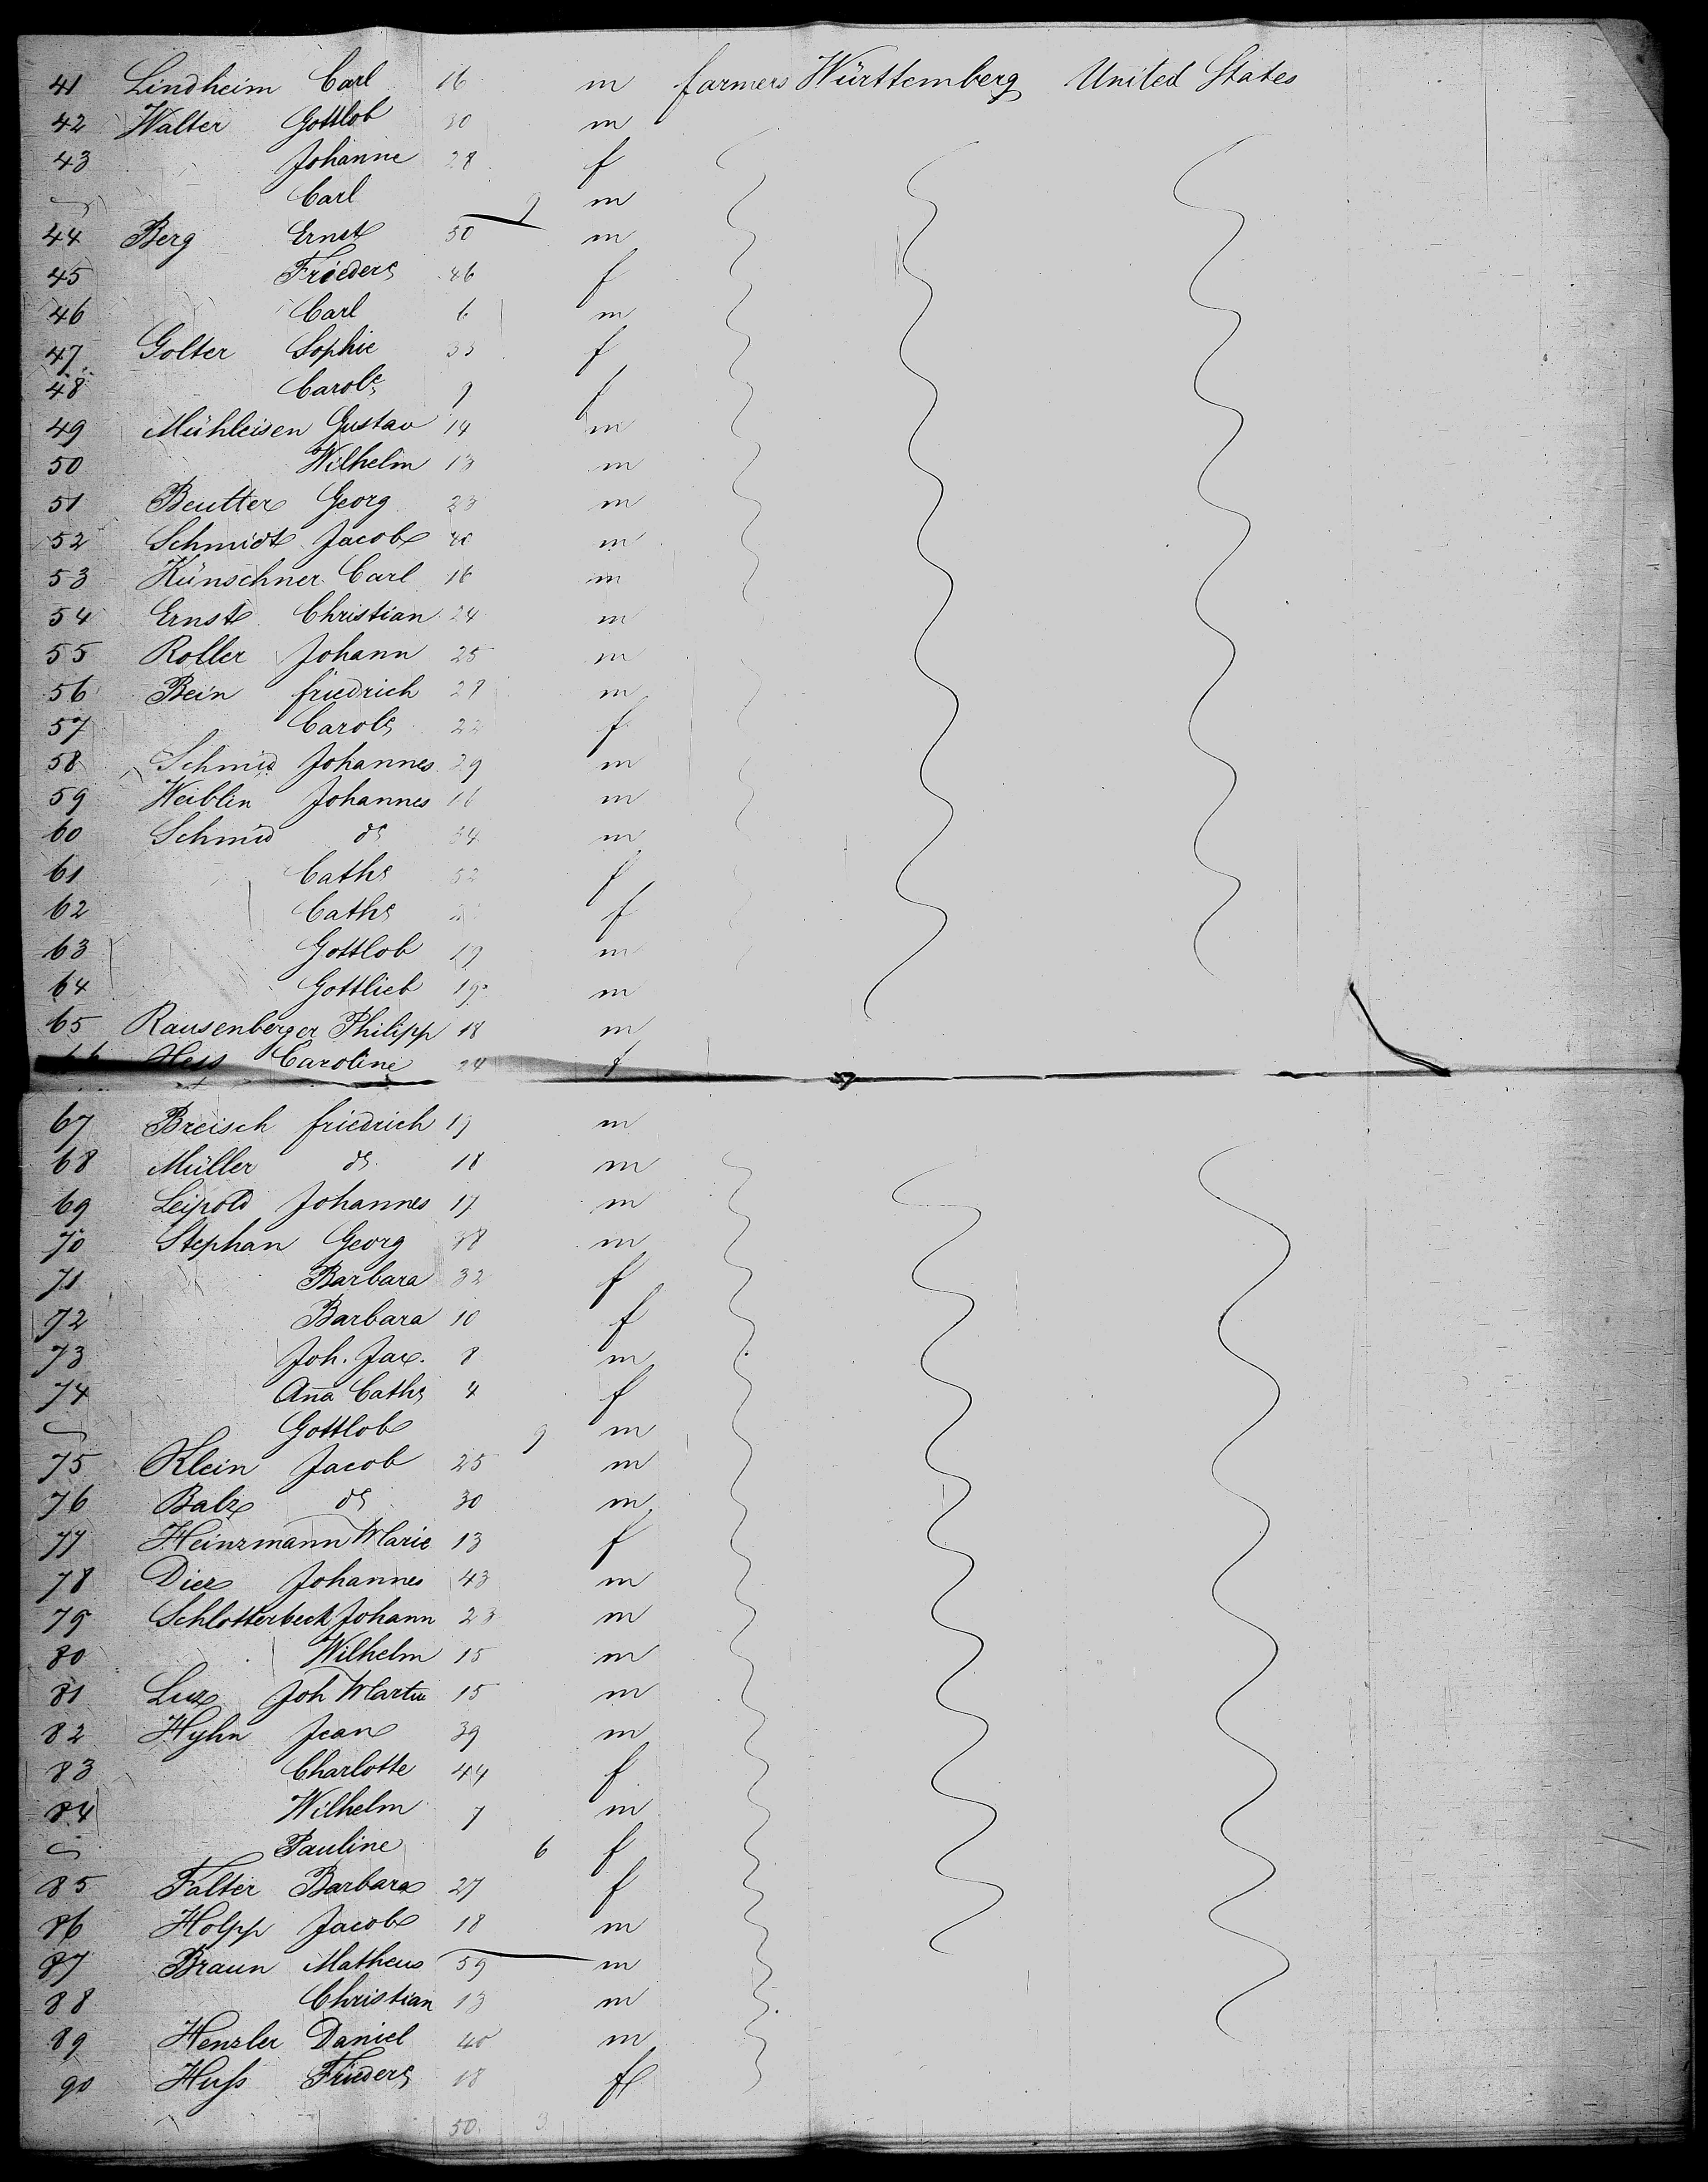 41 Lindheim Carl 16 m farmers Württemberg United States
42 Walter Gottlob 30 m
43 Johanne 28 f
Carl 9 m
44 Berg Ernst 50 m
45 Frieder 46 f
46 Carl 6 m
47 Golter Sophie 33 f
48 Carole 9 f
49 Mühleisen Gustav 14 m
50 Wilhelm 13 m
51 Beutter Georg 23 m
52 Schmidt Jacob 40 m
53 Künschner Carl 16 m
54 Ernst Christian 24 m
55 Roller Johann 25 m
56 Bein friedrich 28 m
57 Carole 22 f
58 Schmid Johannes 29 m
59 Weiblin Johannes 16 m
60 Schmid do 54 m
61 Cath 52 f
62 Cath f
63 Gottlob 19 m
64 Gottlieb 19 m
65 Rausenberger Philipp 18 m
66 Hess Caroline 24 f
67 Breisch friedrich 19 m
68 Müller do 18 m
69 Leipold Johannes 17 m
70 Stephan Georg 38 m
71 Barbara 32 f
72 Barbara 10 f
73 Joh. Jac. 8 m
74 Ana Cath 4 f
Gottlob 9 m
75 Klein Jacob 25 m
76 Balz do 30 m
77 Heinzmann Marie 13 f
78 Diez Johannes 43 m
79 Schlotterbeck Johann 23 m
80 Wilhelm 15 m
81 Luz Joh Martin 15 m
82 Hyhn Jean 39 m
83 Charlotte 44 f
84 Wilhelm 7 m
Pauline 6 f
85 Falter Barbara 27 f
86 Holpp Jacob 18 m
87 Braun Matheus 59 m
88 Christian 13 m
89 Henzler Daniel 40 m
90 Huß Frieder 18 f
50. 3